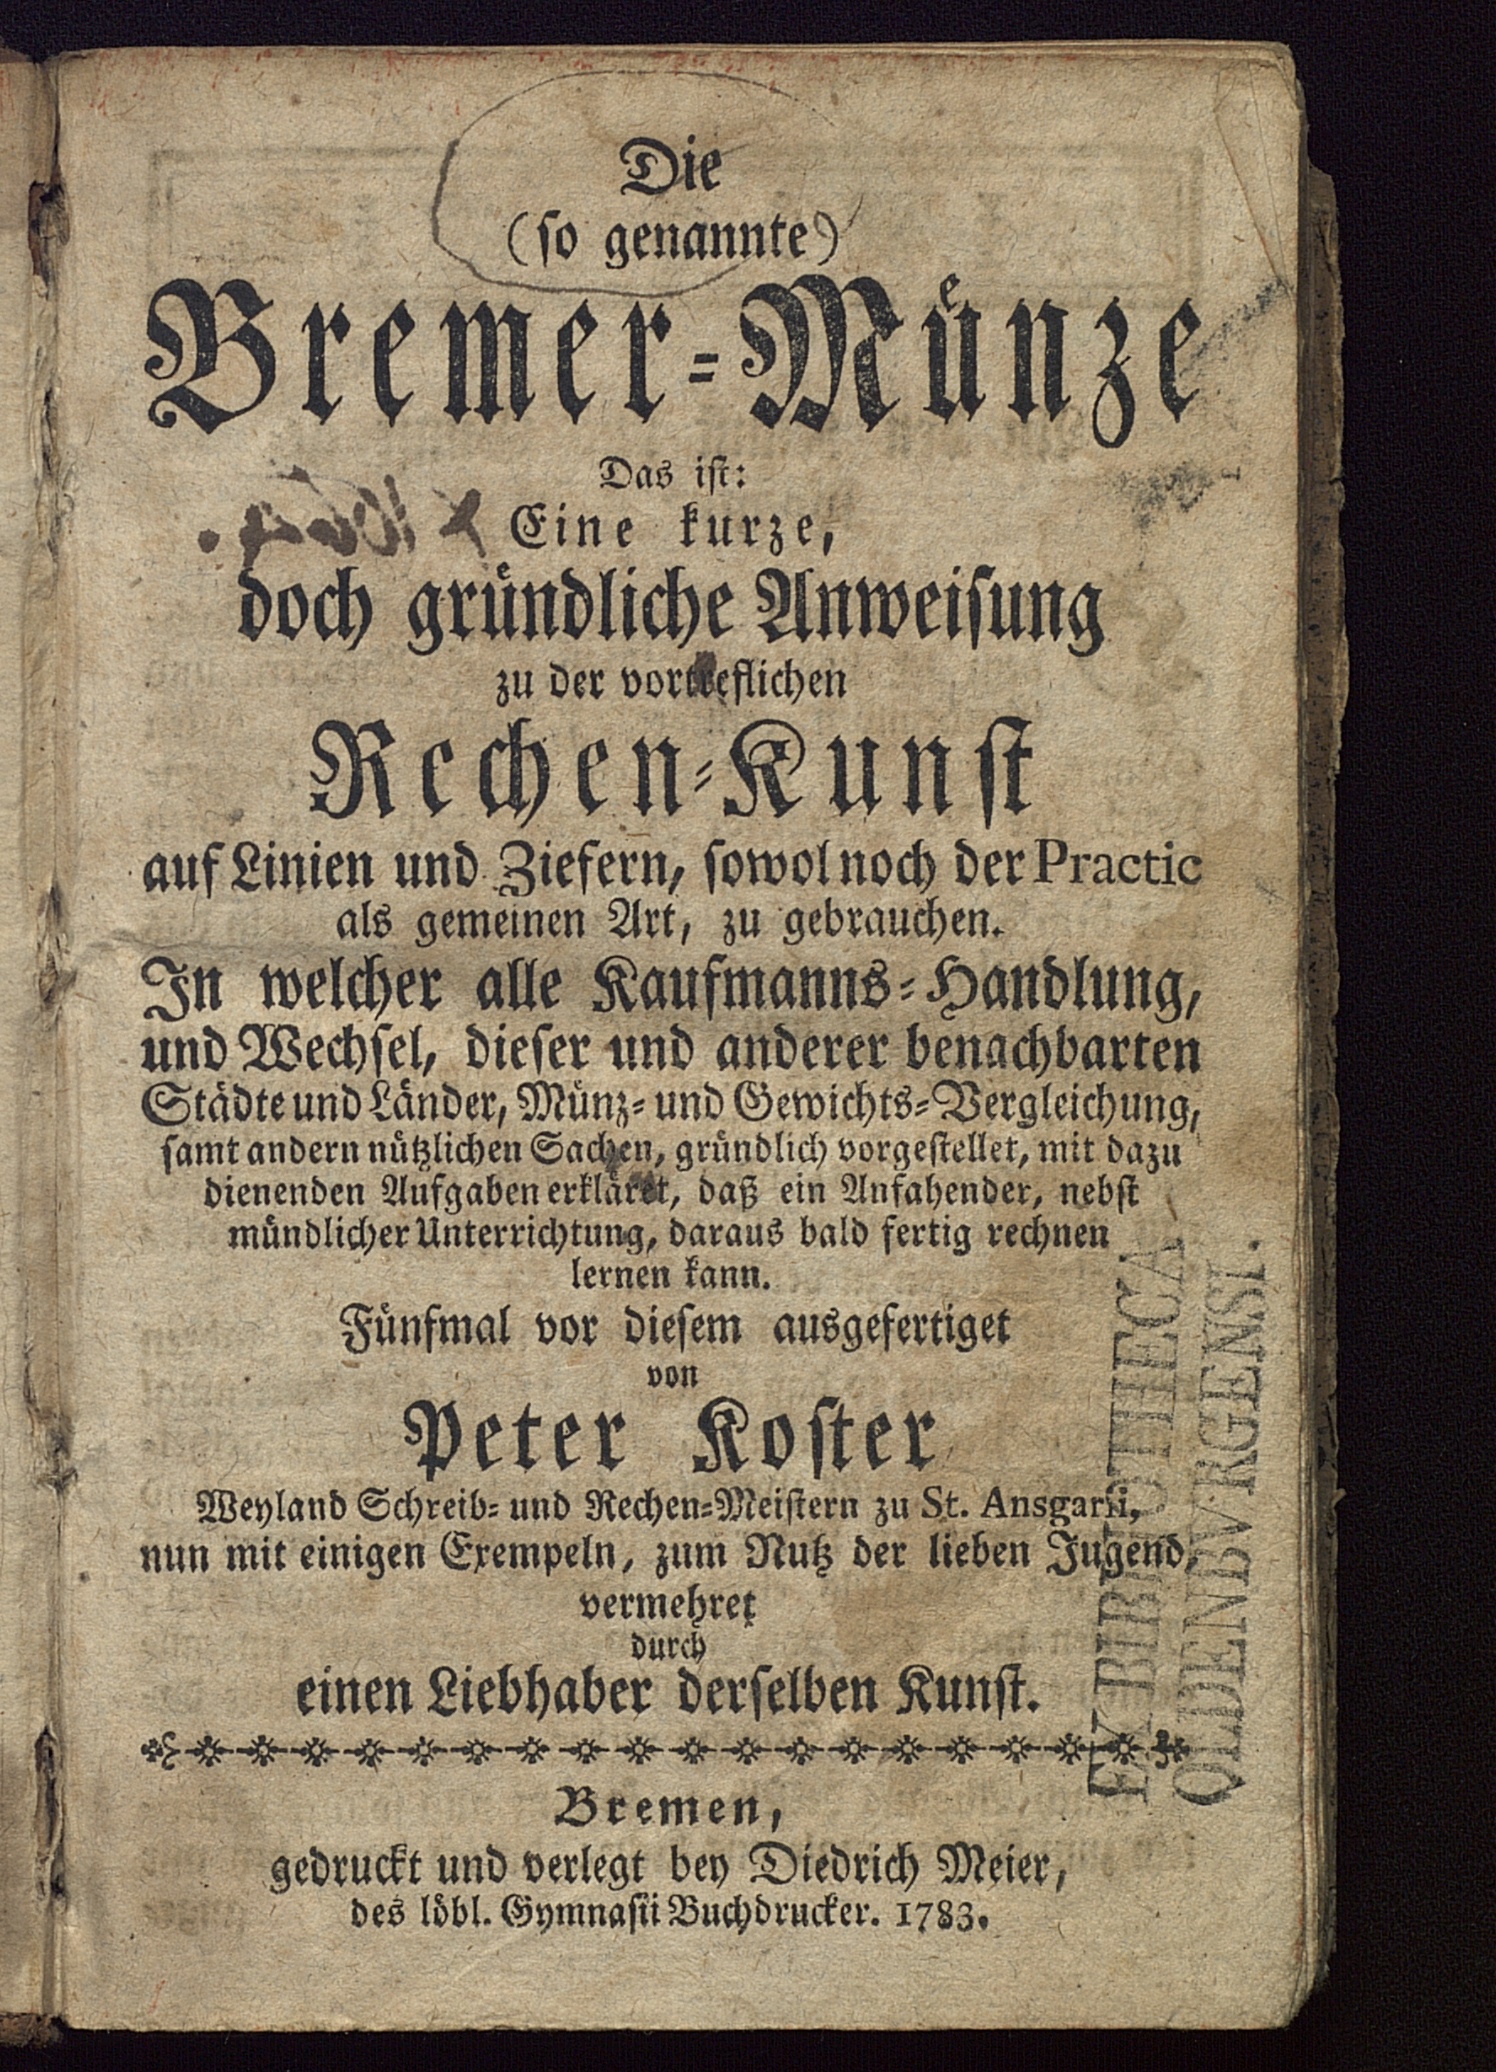 Die
(so genannte)
Bremer-Münze
Das ist:
Eine kurze,
doch gründliche Anweisung
zu der vortreflichen
Rechen-Kunst
auf Linien und Ziefern, sowol noch der Practic
als gemeinen Art, zu gebrauchen.
In welcher alle Kaufmanns-Handlung,
und Wechsel, dieser und anderer benachbarten
Städte und Länder, Münz- und Gewichts-Vergleichung,
samt andern nützlichen Sachen, gründlich vorgestellet, mit dazu
dienenden Aufgaben erkläret, daß ein Anfahender, nebst
mündlicher Unterrichtung, daraus bald fertig rechnen
lernen kann.
Fünfmal vor diesem ausgefertiget
von
Peter Koster
Weyland Schreib- und Rechen-Meistern zu St. Ansgarii,
nun mit einigen Exempeln, zum Nutz der lieben Jugend,
vermehret
durch
einen Liebhaber derselben Kunst.
Bremen,
gedruckt und verlegt bey Diedrich Meier,
des löbl. Gymnasii Buchdrucker. 1783.
EX BIBLIOTHECA
OLDENBVRGENSI.